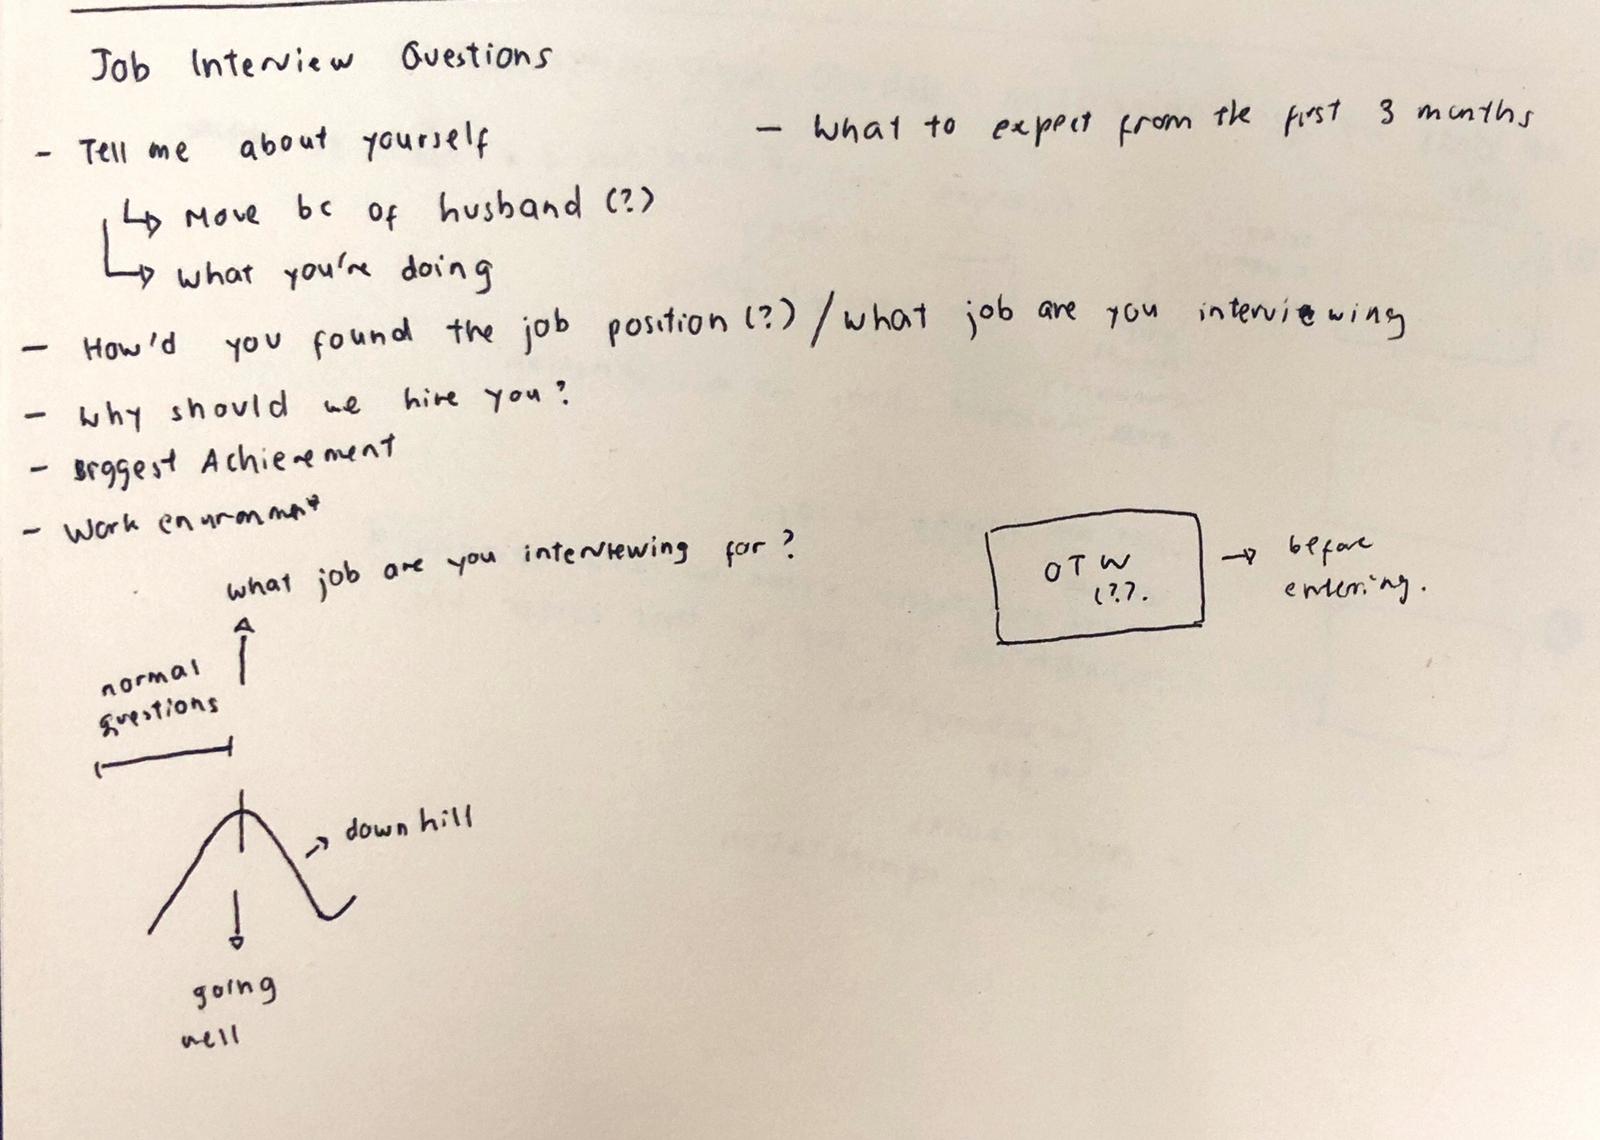 Job Interview Questions
- Tell me about yourself
↳ Move bc of husband (?)
↳ what you're doing
- How'd you found the job position (?) / what job are you interviewing
- Why should we hire you?
- Biggest Achievement
- Work environment
- What to expect from the first 3 months
what job are you interviewing for?
normal
questions
down hill
going
well
OTW
(??.
→ before
entering.